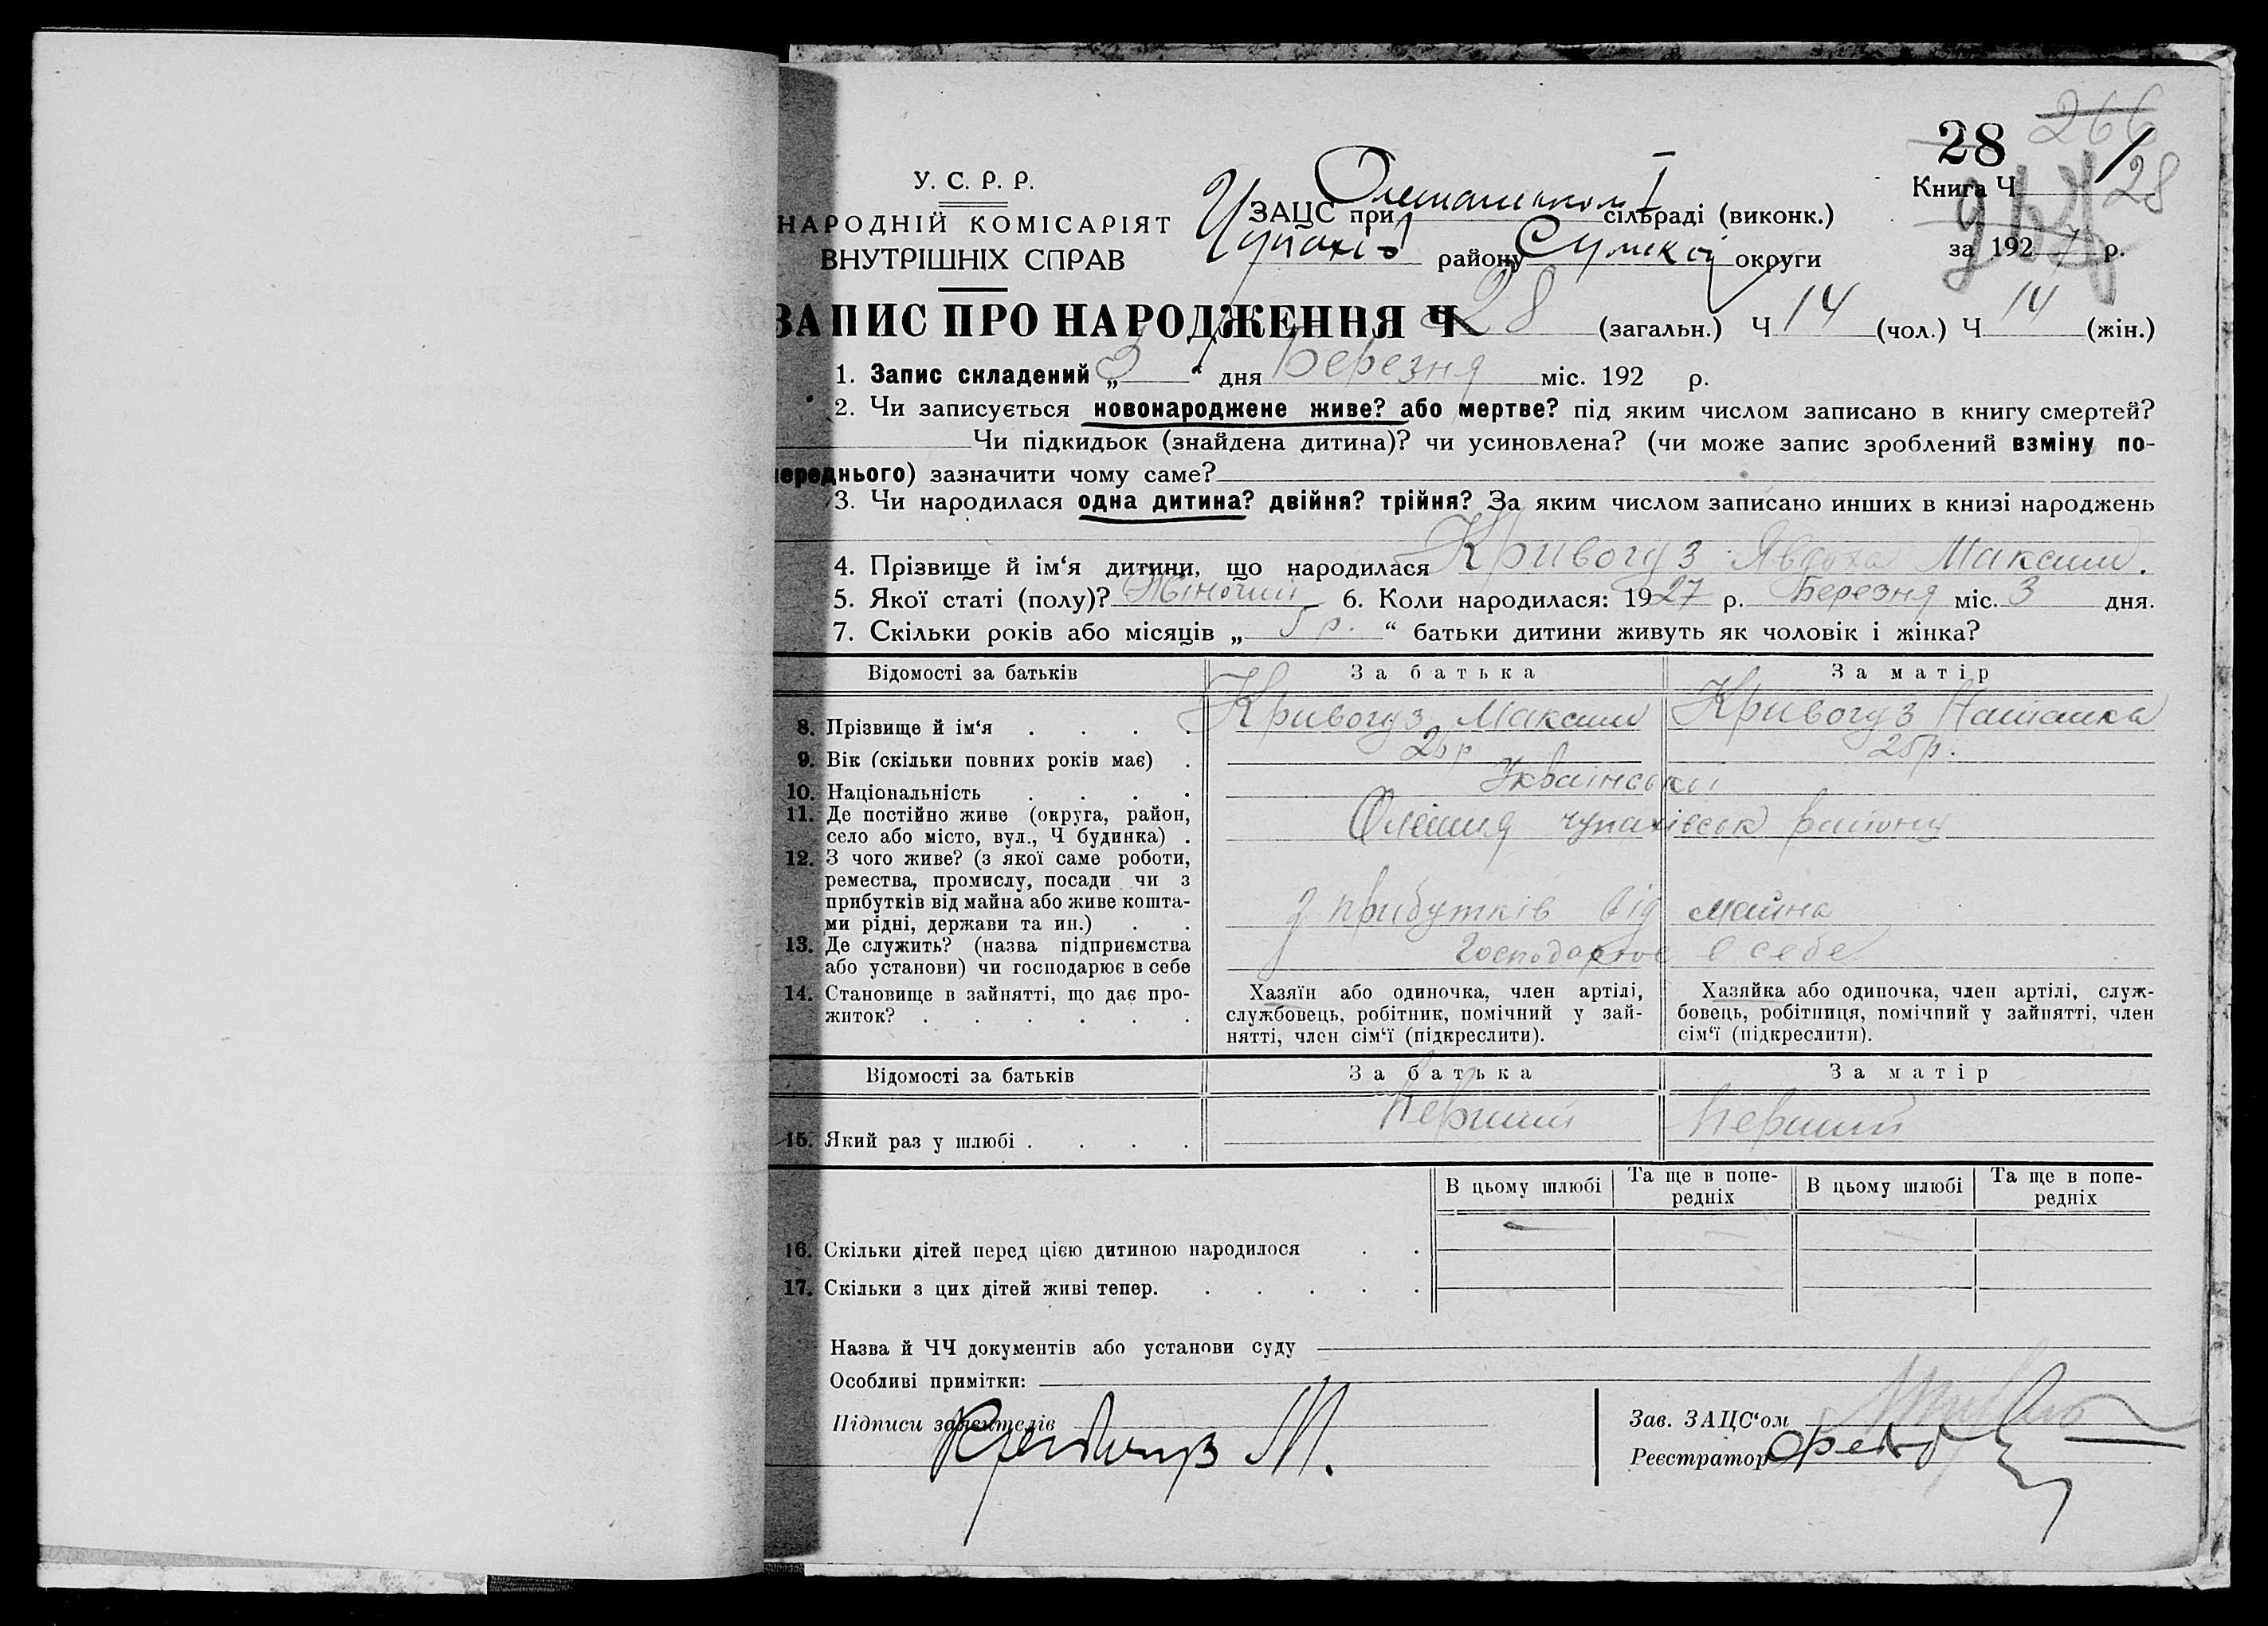 266
28
28
У. С. Р. Р.
НАРОДНІЙ КОМІСАРІЯТ
ВНУТРІШНІХ СПРАВ
Книга Ч 1
ЗАЦС при I сільраді (виконк.)
Чупахів району Сумськой округи
за 1927 р.
ЗАПИС ПРО НАРОДЖЕННЯ Ч 28 (загальн.) Ч 14 (чол.) Ч 14 (жін.)
1. Запис складений „ 3 “ дня Березня міс. 192 р.
2. Чи записується новонароджене живе? або мертве? під яким числом записано в книгу смертей?
Чи підкидьок (знайдена дитина)? чи усиновлена? (чи може запис зроблений взміну по-
переднього) зазначити чому саме?
3. Чи народилася одна дитина? двійня? трійня? За яким числом записано инших в книзі народжень
4. Прізвище й ім‘я дитини, що народилася Кривогуз Явдоха Максим.
5. Якої статі (полу)? Жіночий 6. Коли народилася: 1927 р. Березня міс. 3 дня.
7. Скільки років або місяців „ 5 р. “ батьки дитини живуть як чоловік і жінка?
Відомості за батьків За батька За матір
8. Прізвище й ім‘я . . . . Кривогуз Максим Кривогуз Наталка
9. Вік (скільки повних років має) . 26р 25р.
10. Національність . . . . Українські
11. Де постійно живе (округа, район,
село або місто, вул., Ч будинка) . Олешня чупахівськ району
12. З чого живе? (з якої саме роботи,
ремества, промислу, посади чи з
прибутків від майна або живе кошта-
ми рідні, держави та ин.) . . З прибутків від майна
13. Де служить? (назва підприємства
або установи) чи господарює в себе Господарює в себе
14. Становище в зайнятті, що дає про-
житок? . . . . . .
Хазяїн або одиночка, член артілі,
службовець, робітник, помічний у зай-
нятті, член сім‘ї (підкреслити).
Хазяйка або одиночка, член артілі, служ-
бовець, робітниця, помічний у зайнятті, член
сім‘ї (підкреслити).
Відомості за батьків За батька За матір
15. Який раз у шлюбі . . . . Перший Перший
В цьому шлюбі Та ще в попе-
редніх В цьому шлюбі Та ще в попе-
редніх
16. Скільки дітей перед цією дитиною народилося . .
17. Скільки з цих дітей живі тепер. . . . . .
Назва й ЧЧ документів або установи суду
Особливі примітки:
Підписи заявителів Кривогуз М.
Зав. ЗАЦС‘ом
Реєстратор